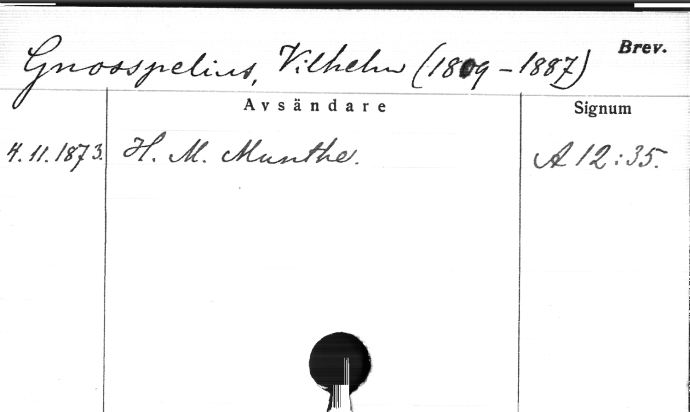 Gnosspelius, Vilhelm (1809-1887) Brev.
Avsändare Signum
4.11.1873. H. M. Munthe. A 12:35.